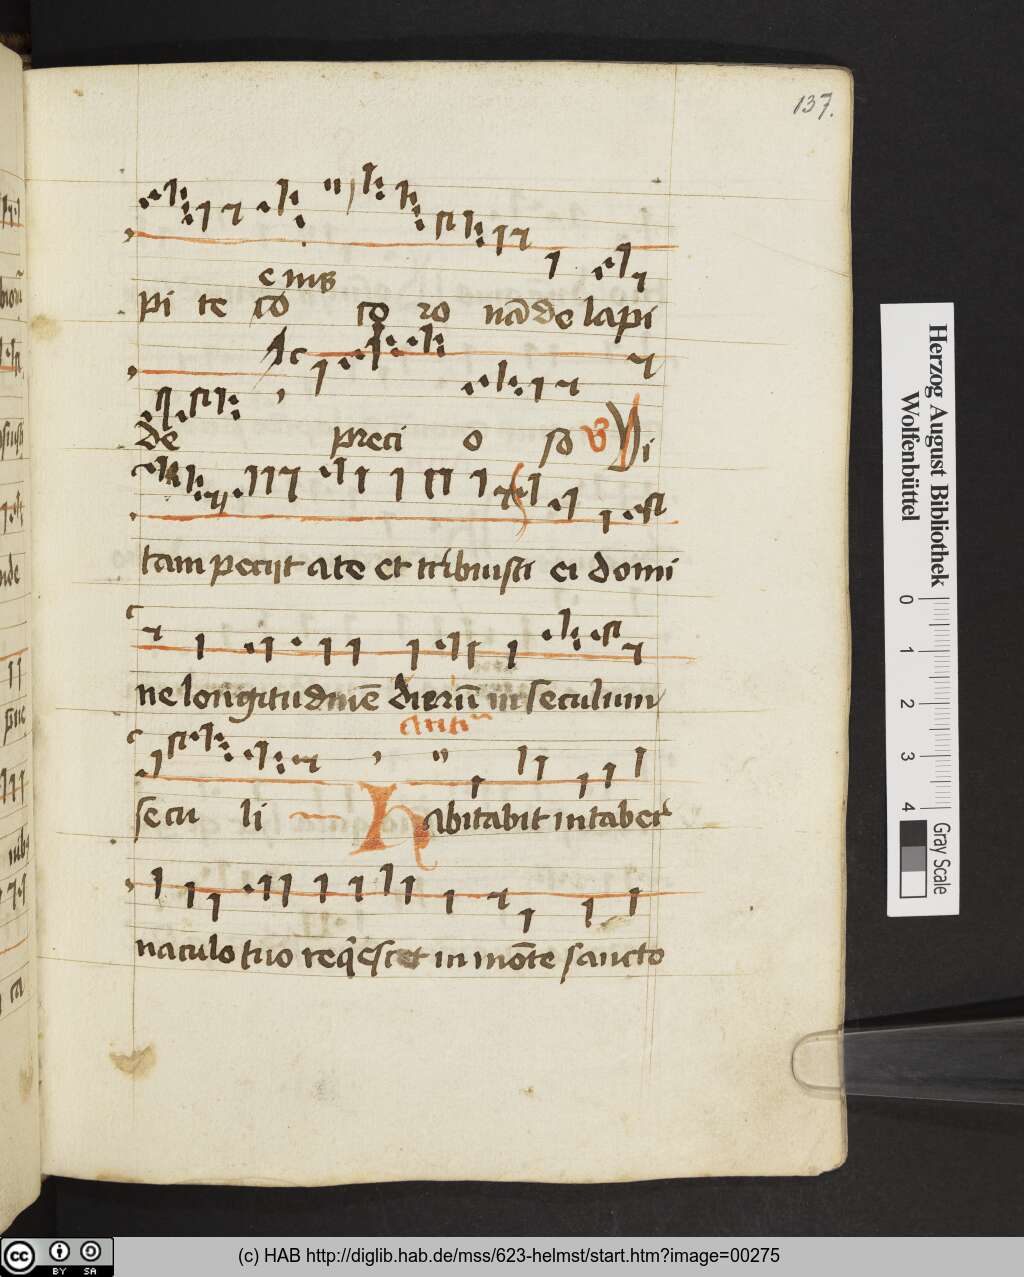 137.
eius
pi te co co ro nā de lapi
de preci o so V Vi
tam peciit a te et tribuisti ei domi
ne longitudinē dierū in seculum
Antiᵃ
secu li Habitabit in taber
naculo tuo reqͥescet in mōte sancto
Herzog August Bibliothek
Wolfenbüttel
0 1 2 3 4
Gray Scale
cc BY SA
(c) HAB http://diglib.hab.de/mss/623-helmst/start.htm?image=00275